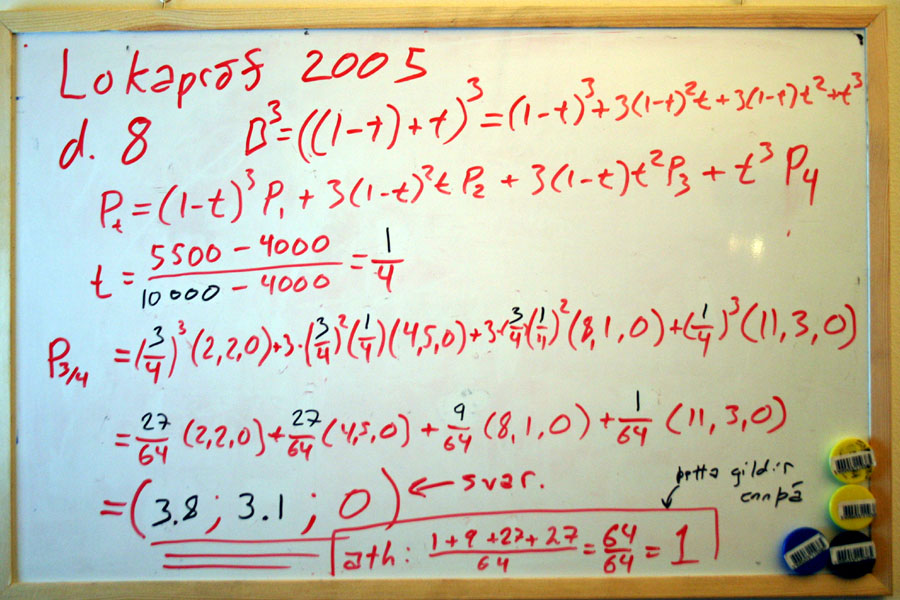 Lokapróf 2005
d. 8 B³=((1-t)+t)³=(1-t)³+3(1-t)²t+3(1-t)t²+t³
Pₜ=(1-t)³P₁+3(1-t)²tP₂+3(1-t)t²P₃+t³P₄
t=(5500-4000)/(10000-4000)=1/4
P₃/₄=(3/4)³(2,2,0)+3·(3/4)²(1/4)(4,5,0)+3·(3/4)(1/4)²(8,1,0)+(1/4)³(11,3,0)
=27/64(2,2,0)+27/64(4,5,0)+9/64(8,1,0)+1/64(11,3,0)
=(3.8; 3.1; 0) ← svar.
þetta gildir
ennþá
ath: (1+9+27+27)/64=64/64=1